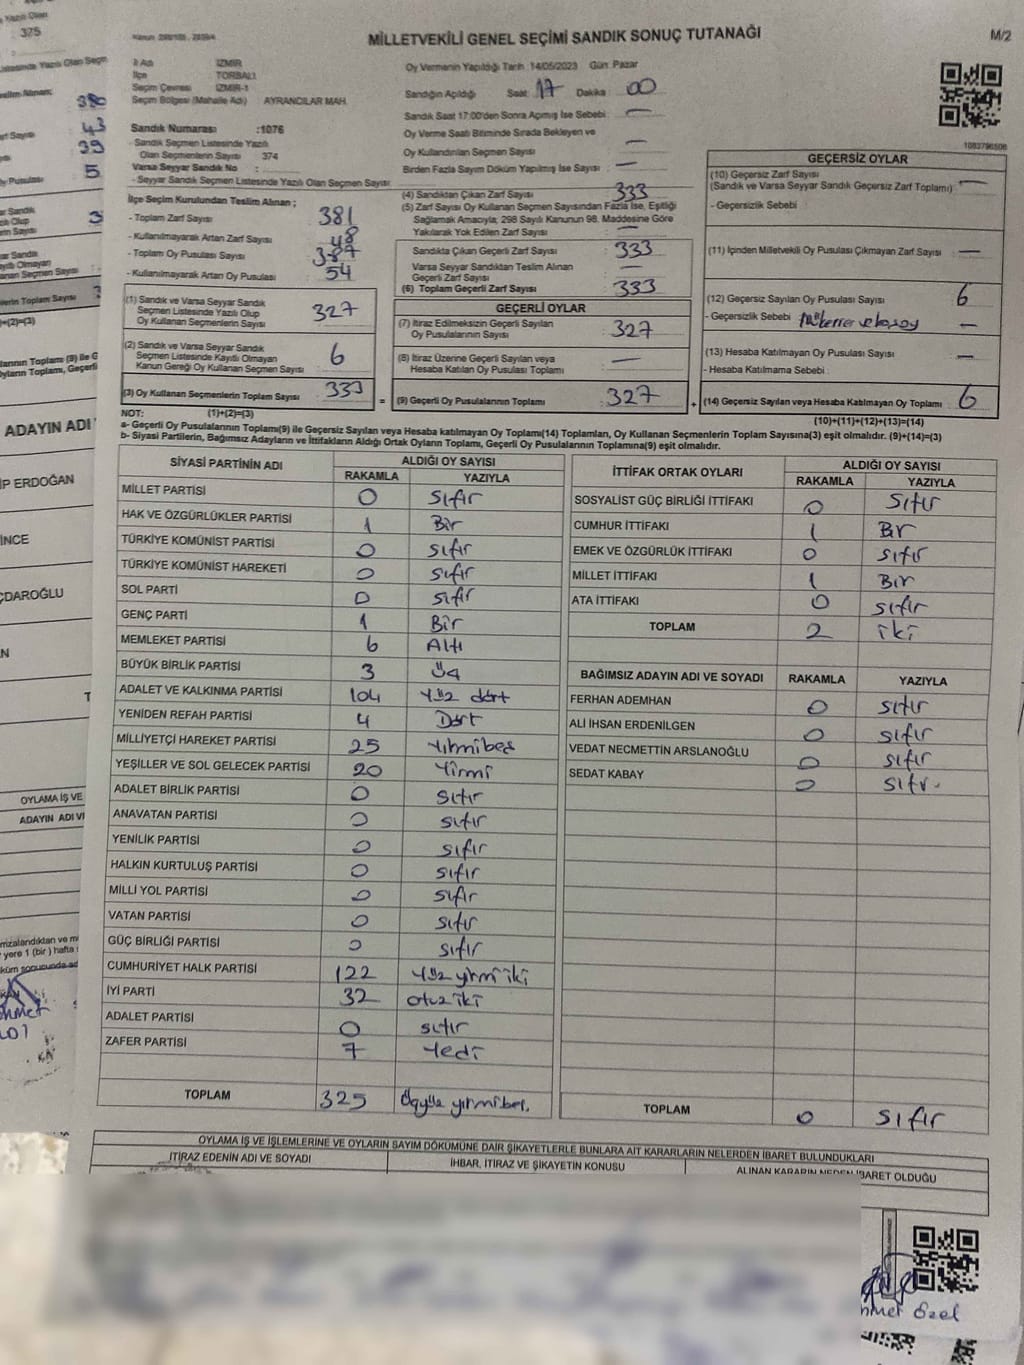 MİLLETVEKİLİ GENEL SEÇİMİ SANDIK SONUÇ TUTANAĞI
M/2
375
İl Adı İZMİR
İlçe TORBALI
Seçim Çevresi İZMİR-1
Seçim Bölgesi (Mahalle Adı) AYRANCILAR MAH.
Sandık Numarası :1076
- Sandık Seçmen Listesinde Yazılı
Olan Seçmenlerin Sayısı 374
Varsa Seyyar Sandık No :
- Seyyar Sandık Seçmen Listesinde Yazılı Olan Seçmen Sayısı
İlçe Seçim Kurulundan Teslim Alınan ;
- Toplam Zarf Sayısı 381
- Kullanılmayarak Artan Zarf Sayısı 48
- Toplam Oy Pusulası Sayısı 387
- Kullanılmayarak Artan Oy Pusulası 54
(1) Sandık ve Varsa Seyyar Sandık
Seçmen Listesinde Yazılı Olup
Oy Kullanan Seçmenlerin Sayısı 327
(2) Sandık ve Varsa Seyyar Sandık
Seçmen Listesinde Kayıtlı Olmayan
Kanun Gereği Oy Kullanan Seçmen Sayısı : 6
(3) Oy Kullanan Seçmenlerin Toplam Sayısı : 333
Oy Vermenin Yapıldığı Tarih :14/05/2023 Gün: Pazar
Sandığın Açıldığı Saat: 17 Dakika : 00
Sandık Saat 17:00'den Sonra Açımış İse Sebebi : —
Oy Verme Saati Bitiminde Sırada Bekleyen ve
Oy Kullandırılan Seçmen Sayısı : —
Birden Fazla Sayım Döküm Yapılmış İse Sayısı : —
(4) Sandıktan Çıkan Zarf Sayısı : 333
(5) Zarf Sayısı Oy Kullanan Seçmen Sayısından Fazla İse, Eşitliği
Sağlamak Amacıyla; 298 Sayılı Kanunun 98. Maddesine Göre
Yakılarak Yok Edilen Zarf Sayısı : —
Sandıkta Çıkan Geçerli Zarf Sayısı : 333
Varsa Seyyar Sandıktan Teslim Alınan
Geçerli Zarf Sayısı : —
(6) Toplam Geçerli Zarf Sayısı : 333
GEÇERLİ OYLAR
(7) İtiraz Edilmeksizin Geçerli Sayılan
Oy Pusulalarının Sayısı : 327
(8) İtiraz Üzerine Geçerli Sayılan veya
Hesaba Katılan Oy Pusulası Toplamı : —
= (9) Geçerli Oy Pusulalarının Toplamı : 327 +
1083796506
GEÇERSİZ OYLAR
(10) Geçersiz Zarf Sayısı
(Sandık ve Varsa Seyyar Sandık Geçersiz Zarf Toplamı) : —
- Geçersizlik Sebebi :
(11) İçinden Milletvekili Oy Pusulası Çıkmayan Zarf Sayısı : —
(12) Geçersiz Sayılan Oy Pusulası Sayısı : 6
- Geçersizlik Sebebi :
(13) Hesaba Katılmayan Oy Pusulası Sayısı : —
- Hesaba Katılmama Sebebi :
(14) Geçersiz Sayılan veya Hesaba Katılmayan Oy Toplamı : 6
NOT: (1)+(2)=(3)
(10)+(11)+(12)+(13)=(14)
a- Geçerli Oy Pusulalarının Toplamı(9) ile Geçersiz Sayılan veya Hesaba katılmayan Oy Toplamı(14) Toplamları, Oy Kullanan Seçmenlerin Toplam Sayısına(3) eşit olmalıdır. (9)+(14)=(3)
b- Siyasi Partilerin, Bağımsız Adayların ve İttifakların Aldığı Ortak Oyların Toplamı, Geçerli Oy Pusulalarının Toplamına(9) eşit olmalıdır.
SİYASİ PARTİNİN ADI ALDIĞI OY SAYISI
RAKAMLA YAZIYLA
MİLLET PARTİSİ 0 sıfır
HAK VE ÖZGÜRLÜKLER PARTİSİ 1 Bir
TÜRKİYE KOMÜNİST PARTİSİ 0 sıfır
TÜRKİYE KOMÜNİST HAREKETİ 0 sıfır
SOL PARTİ 0 sıfır
GENÇ PARTİ 1 Bir
MEMLEKET PARTİSİ 6 Altı
BÜYÜK BİRLİK PARTİSİ 3 Üç
ADALET VE KALKINMA PARTİSİ 104 Yüz dört
YENİDEN REFAH PARTİSİ 4 Dört
MİLLİYETÇİ HAREKET PARTİSİ 25 Yirmibeş
YEŞİLLER VE SOL GELECEK PARTİSİ 20 Yirmi
ADALET BİRLİK PARTİSİ 0 sıfır
ANAVATAN PARTİSİ 0 sıfır
YENİLİK PARTİSİ 0 sıfır
HALKIN KURTULUŞ PARTİSİ 0 sıfır
MİLLİ YOL PARTİSİ 0 sıfır
VATAN PARTİSİ 0 sıfır
GÜÇ BİRLİĞİ PARTİSİ 0 sıfır
CUMHURİYET HALK PARTİSİ 122 Yüz yirmi iki
İYİ PARTİ 32 otuz iki
ADALET PARTİSİ 0 sıfır
ZAFER PARTİSİ 7 Yedi
TOPLAM 325 Üçyüz yirmibeş.
İTTİFAK ORTAK OYLARI ALDIĞI OY SAYISI
RAKAMLA YAZIYLA
SOSYALİST GÜÇ BİRLİĞİ İTTİFAKI 0 sıfır
CUMHUR İTTİFAKI 1 Bir
EMEK VE ÖZGÜRLÜK İTTİFAKI 0 sıfır
MİLLET İTTİFAKI 1 Bir
ATA İTTİFAKI 0 sıfır
TOPLAM 2 iki
BAĞIMSIZ ADAYIN ADI VE SOYADI RAKAMLA YAZIYLA
FERHAN ADEMHAN 0 sıfır
ALİ İHSAN ERDENİLGEN 0 sıfır
VEDAT NECMETTİN ARSLANOĞLU 0 sıfır
SEDAT KABAY 0 sıfır
TOPLAM 0 sıfır
OYLAMA İŞ VE İŞLEMLERİNE VE OYLARIN SAYIM DÖKÜMÜNE DAİR ŞİKAYETLERLE BUNLARA AİT KARARLARIN NELERDEN İBARET BULUNDUKLARI
İTİRAZ EDENİN ADI VE SOYADI İHBAR, İTİRAZ VE ŞİKAYETİN KONUSU ALINAN KARARIN NEDEN İBARET OLDUĞU
özel
380
43
39
5
ADAYIN ADI
İP ERDOĞAN
İNCE
ÇDAROĞLU
OYLAMA İŞ VE
ADAYIN ADI VE